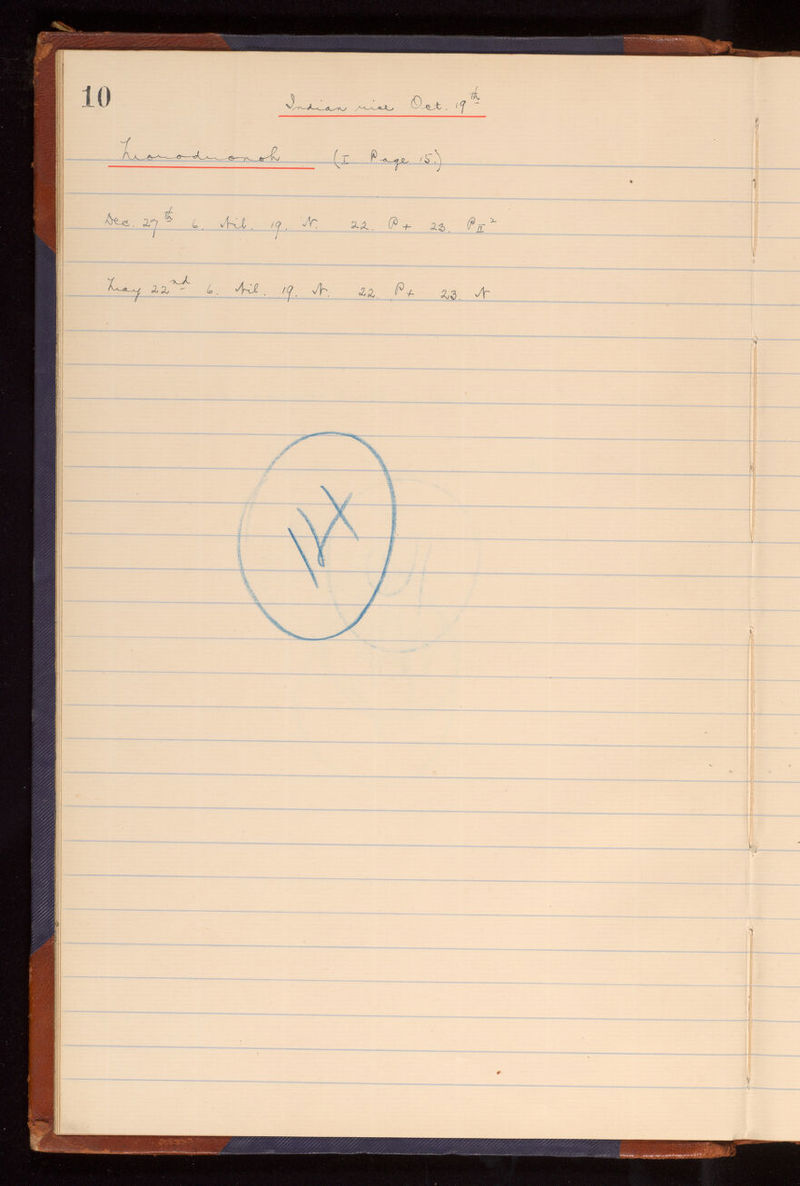 10
Indian rice Oct. 19th
(I Page 15.)
Dec. 27th 6. Nil. 19. N. 22. P+ 23. P II 2
May 22nd 6. Nil. 19. N. 22. P+ 23. N